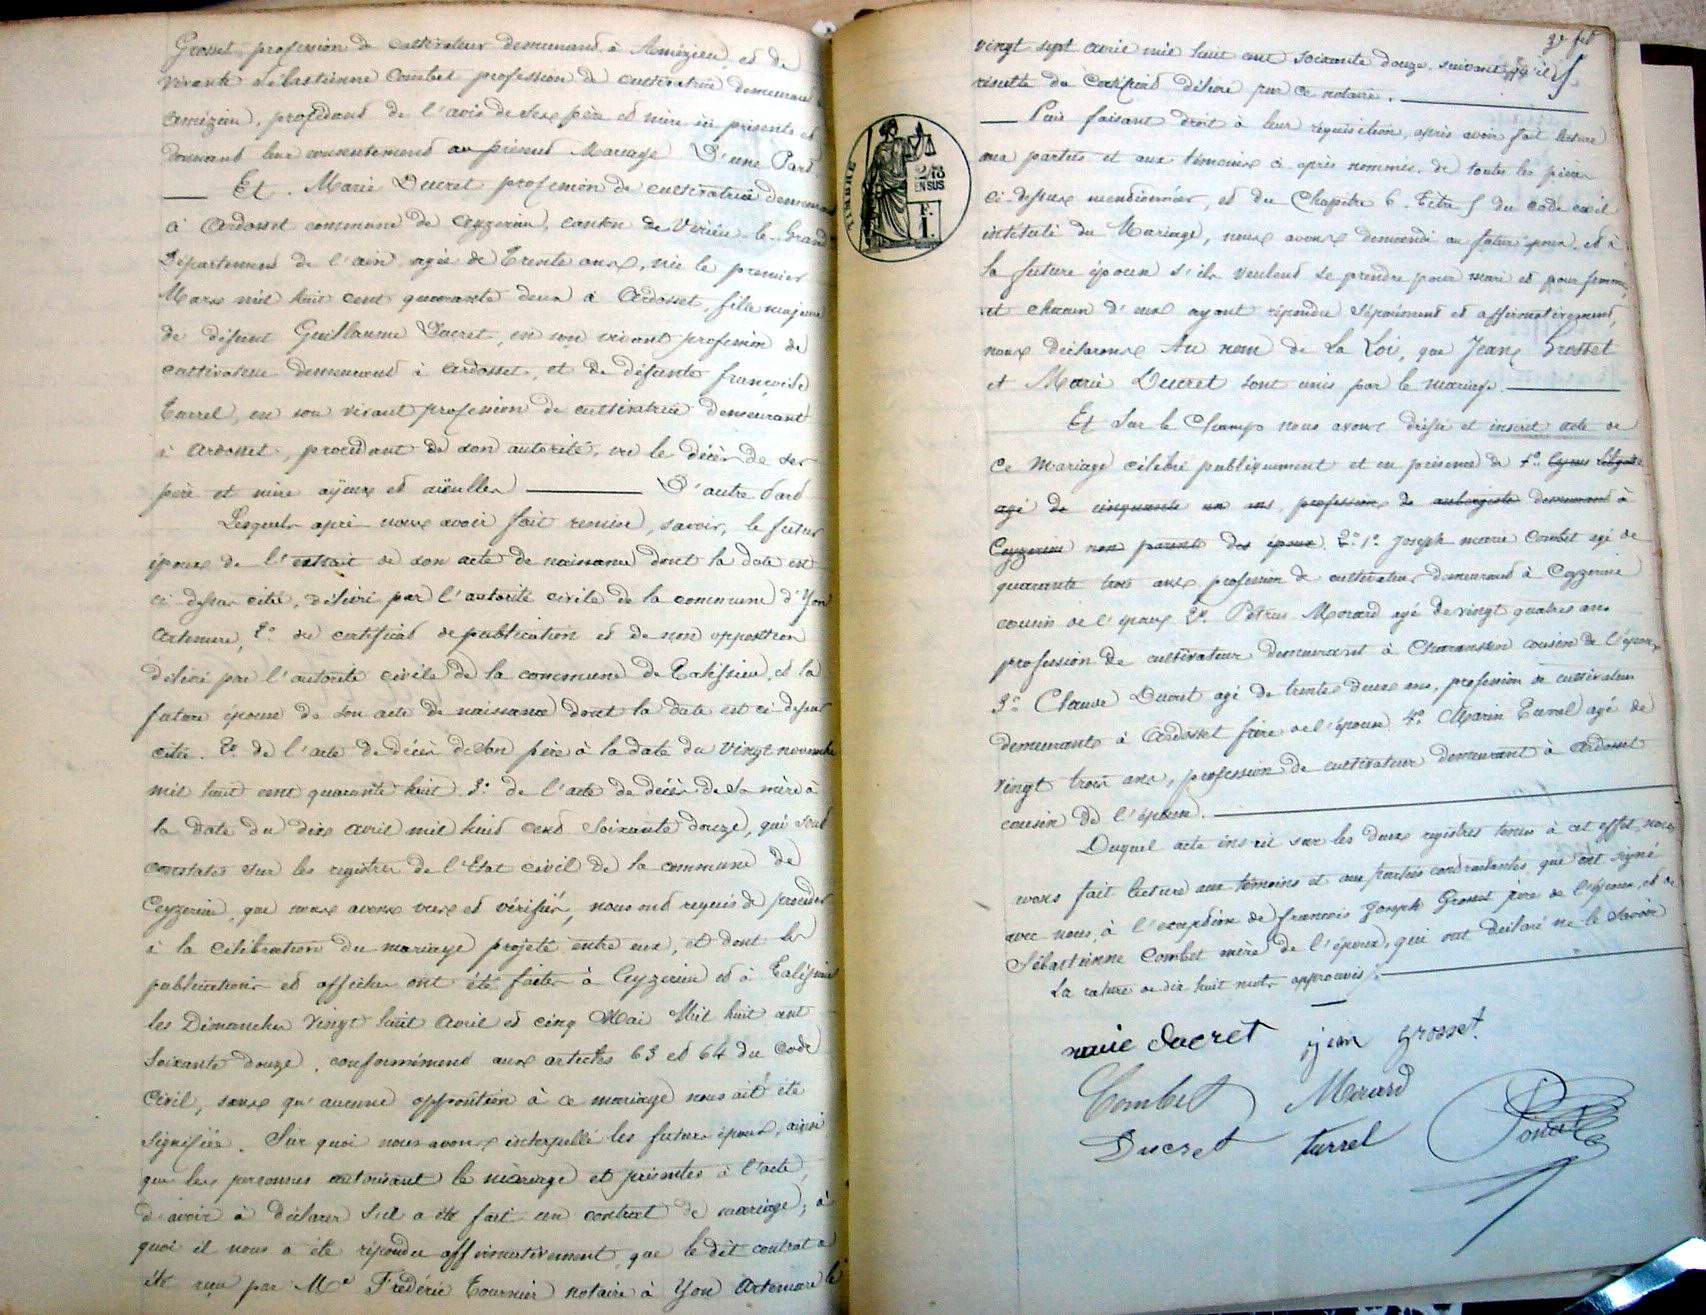 Grosset profession de cultivateur demeurant à Amézieu, et de
vivante Sébastienne Combet profession de cultivatrice demeurant à
Amézieu, procédant de l'avis de ses père et mère ici présents et
donnant leur consentement au présent Mariage D'une Part
Et. Marie Ducret profession de cultivatrice demeurant
à Ardosset commune de Ceyzerieu, canton de Virieu le Grand
Département de l'ain agée de Trente ans, née le premier
Mars mil huit cent quarante deux à Ardosset, fille majeure
de défunt Guillaume Ducret, en son vivant profession de
cultivateur demeurant à Ardosset, et de défunte françoise
Turrel, en son vivant profession de cultivatrice demeurant
à Ardosset, procédant de son autorité, vu le décès de ses
père et mère ayeux et aïeulles D'autre Part
Lesquels après nous avoir fait remise, savoir, le futur
époux de l'extrait de son acte de naissance dont la date est
ci dessus citée, délivré par l'autorité civile de la commune d'Yon
Artemare, 2° du certificat de publication et de non opposition
délivré par l'autorité civile de la commune de Talissieu, et la
future épouse de son acte de naissance dont la date est ci dessus
citée. 2° de l'acte de décès de son père à la date du vingt novembre
mil huit cent quarante huit 3° de l'acte de décès de sa mère à
la date du dix avril mil huit cent soixante douze, qui sont
constatés sur les registres de l'Etat civil de la commune de
Ceyzerieu, que nous avons vus et vérifiés, nous ont requis de procéder
à la célébration du mariage projeté entre eux, et dont les
publications et affiches ont été faites à Ceyzerieu et à Talissieu
les Dimanches vingt huit avril et cinq Mai Mil huit cent
soixante douze, conformément aux articles 63 et 64 du Code
Civil, sans qu'aucune opposition à ce mariage nous ait été
signifiée. Sur quoi nous avons interpellé les futurs époux, ainsi
que les personnes autorisant le mariage et présentes à l'acte,
d'avoir à déclarer s'il a été fait un contrat de mariage; à
quoi il nous a été répondu affirmativement que le dit contrat a
été reçu par Me Frédéric Tournier notaire à Yon Artemare le
vingt sept avril mil huit cent soixante douze, suivant qu'il
résulte du certificat délivré par ce notaire.
Puis faisant droit à leur réquisition, après avoir fait lecture
aux parties et aux témoins ci après nommés de toutes les pièces
ci dessus mentionnées, et du Chapitre 6. Titre 5 du code civil
intitulé du Mariage, nous avons demandé au futur époux et à
la future épouse s'ils veulent se prendre pour mari et pour femme,
et chacun d'eux ayant répondu séparément et affirmativement,
nous déclarons Au nom de La Loi, que Jean Grosset
et Marie Ducret sont unis par le mariage.
Et sur le Champ nous avons dressé et inscrit acte de
ce mariage célébré publiquement et en présence de 1°
agé de cinquante un ans, profession de aubergiste demeurant à
Ceyzerieu non parent des époux 2° 1° Joseph marie Combet agé de
quarante trois ans profession de cultivateur demeurant à Ceyzerieu
cousin de l'époux 2° Pétrus Morard agé de vingt quatres ans
profession de cultivateur demeurant à cousin de l'époux
3° Claude Ducret agé de trente deux ans, profession de cultivateur
demeurants à Ardosset frère de l'épouse 4° Marin Turrel agé de
vingt trois ans, profession de cultivateur demeurant à Ardosset
cousin de l'épouse.
Duquel acte inscrit sur les deux registres tenus à cet effet, nous
avons fait lecture aux témoins et aux parties contractantes, que ont signé
avec nous, à l'exception de francois Joseph Grosset père de l'époux, et de
Sébastienne Combet mère de l'époux, qui ont déclaré ne le savoir
La rature de dix huit mots approuvés.
marie ducret jean grosset
Combet Morard
Ducret turrel
TIMBRE
2/10
EN SUS
F.
1.